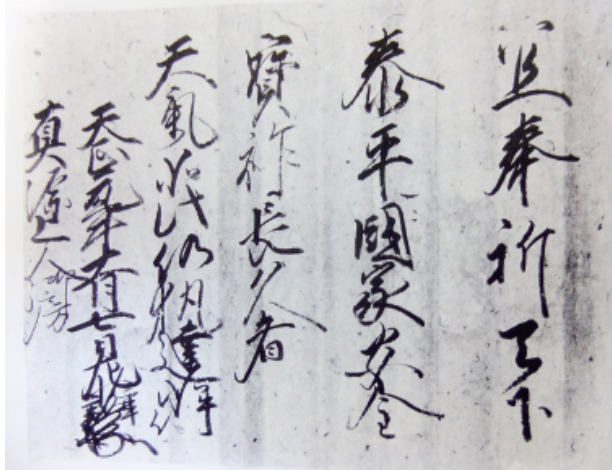 並奉祈天下
泰平國家安全
寶祚長久者
天氣如此仍執達如件
天正九年十月七日
真源上人御房